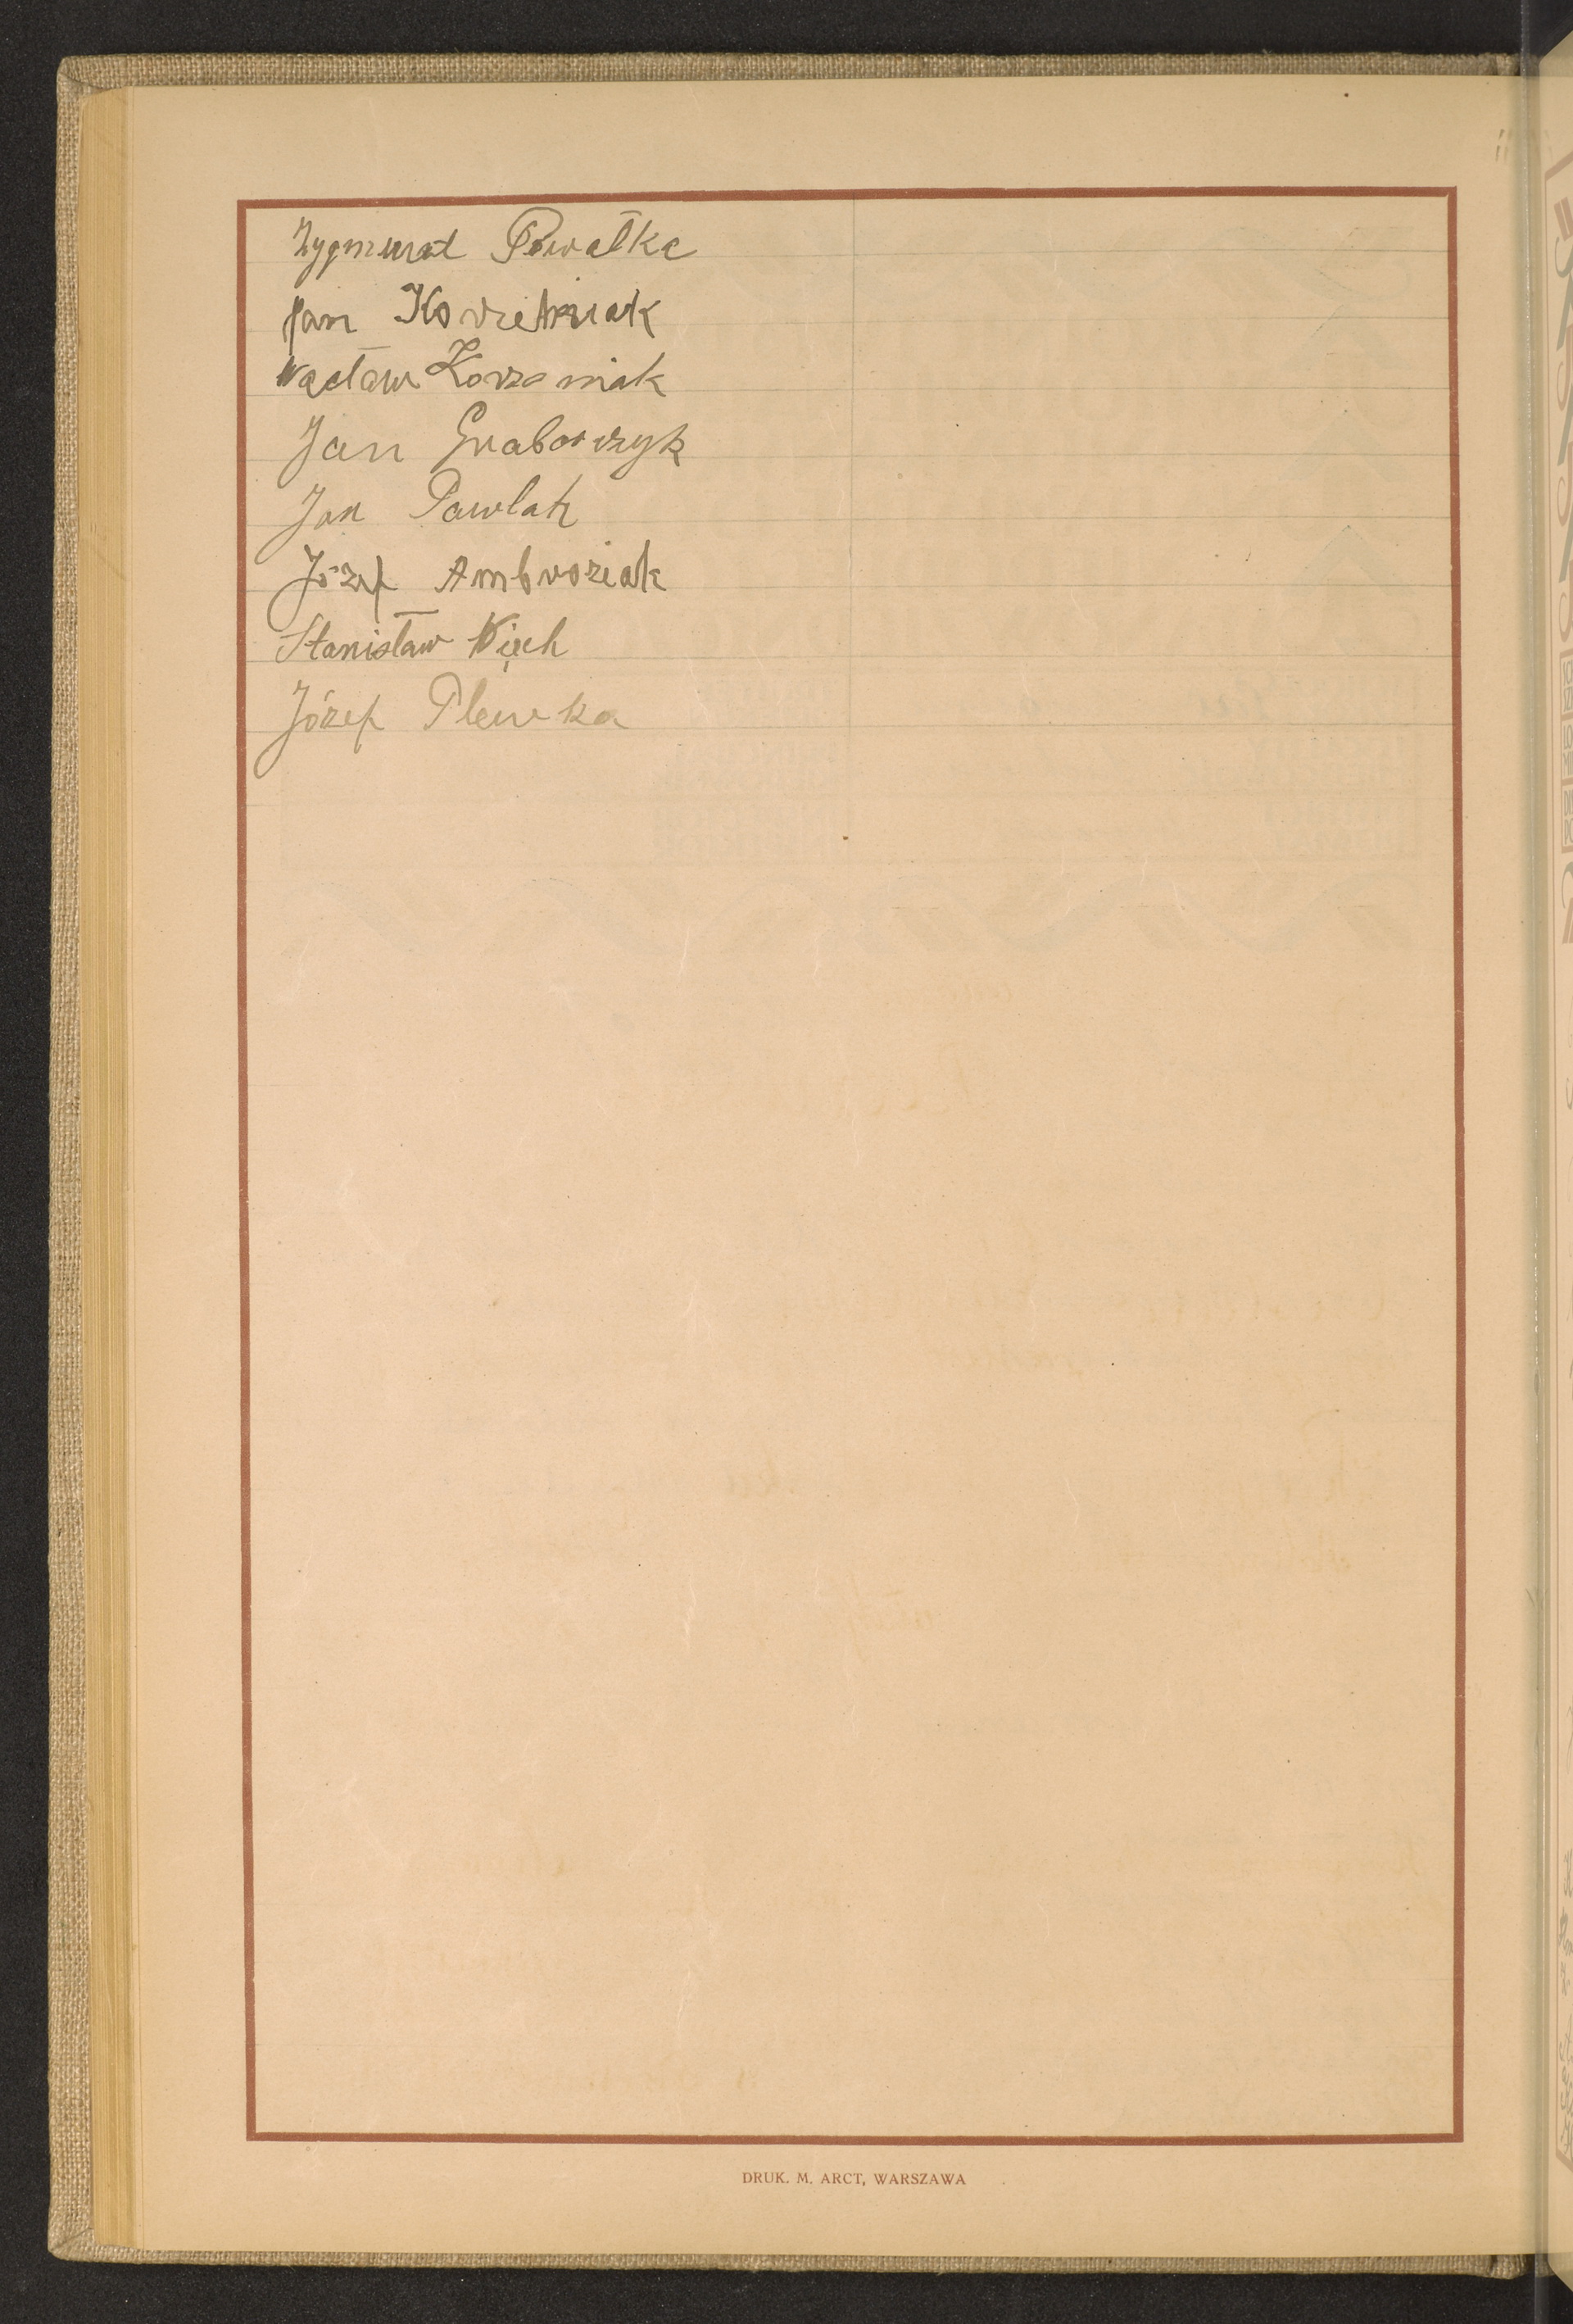 Zygmunt Powałka
Jan Korzeniak
Wacław Korzeniak
Jan Graborczyk
Jan Pawlak
Józef Ambroziak
Stanisław Wiech
Józef Plewka
DRUK. M. ARCT, WARSZAWA